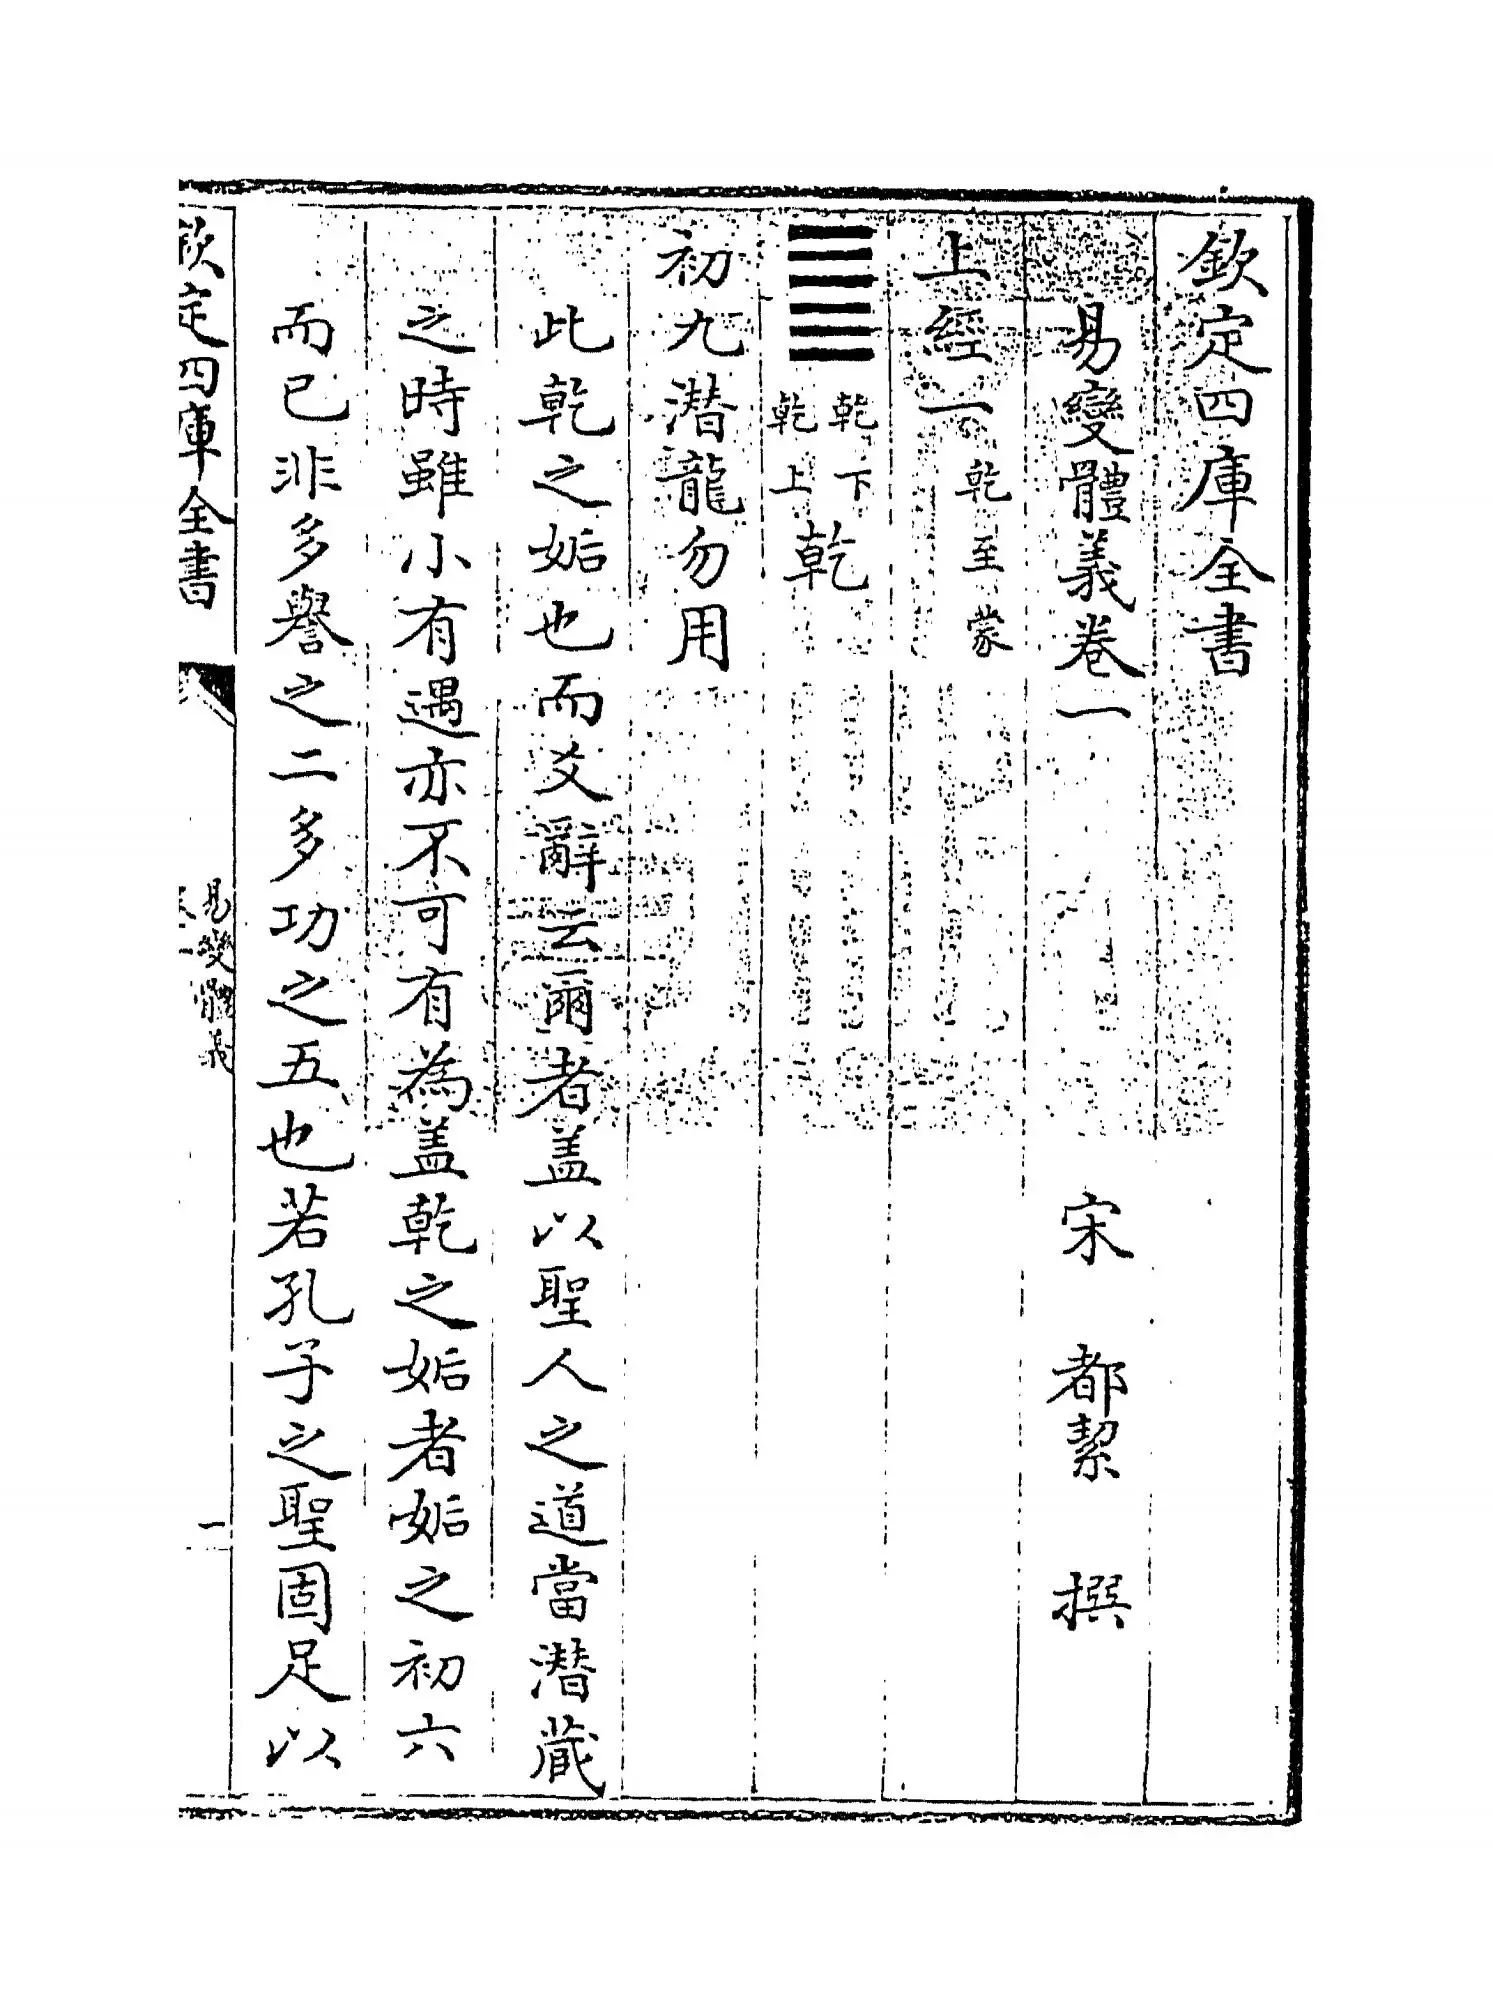 欽定四庫全書
易變體義卷一 宋 都絜 撰
上經一 乾至蒙
䷀ 乾下乾上 乾
初九潛龍勿用
此乾之姤也而爻辭云爾者盖以聖人之道當潛藏
之時雖小有遇亦不可有為盖乾之姤者姤之初六
而已非多譽之二多功之五也若孔子之聖固足以
欽定四庫全書
易變體義
卷一
一